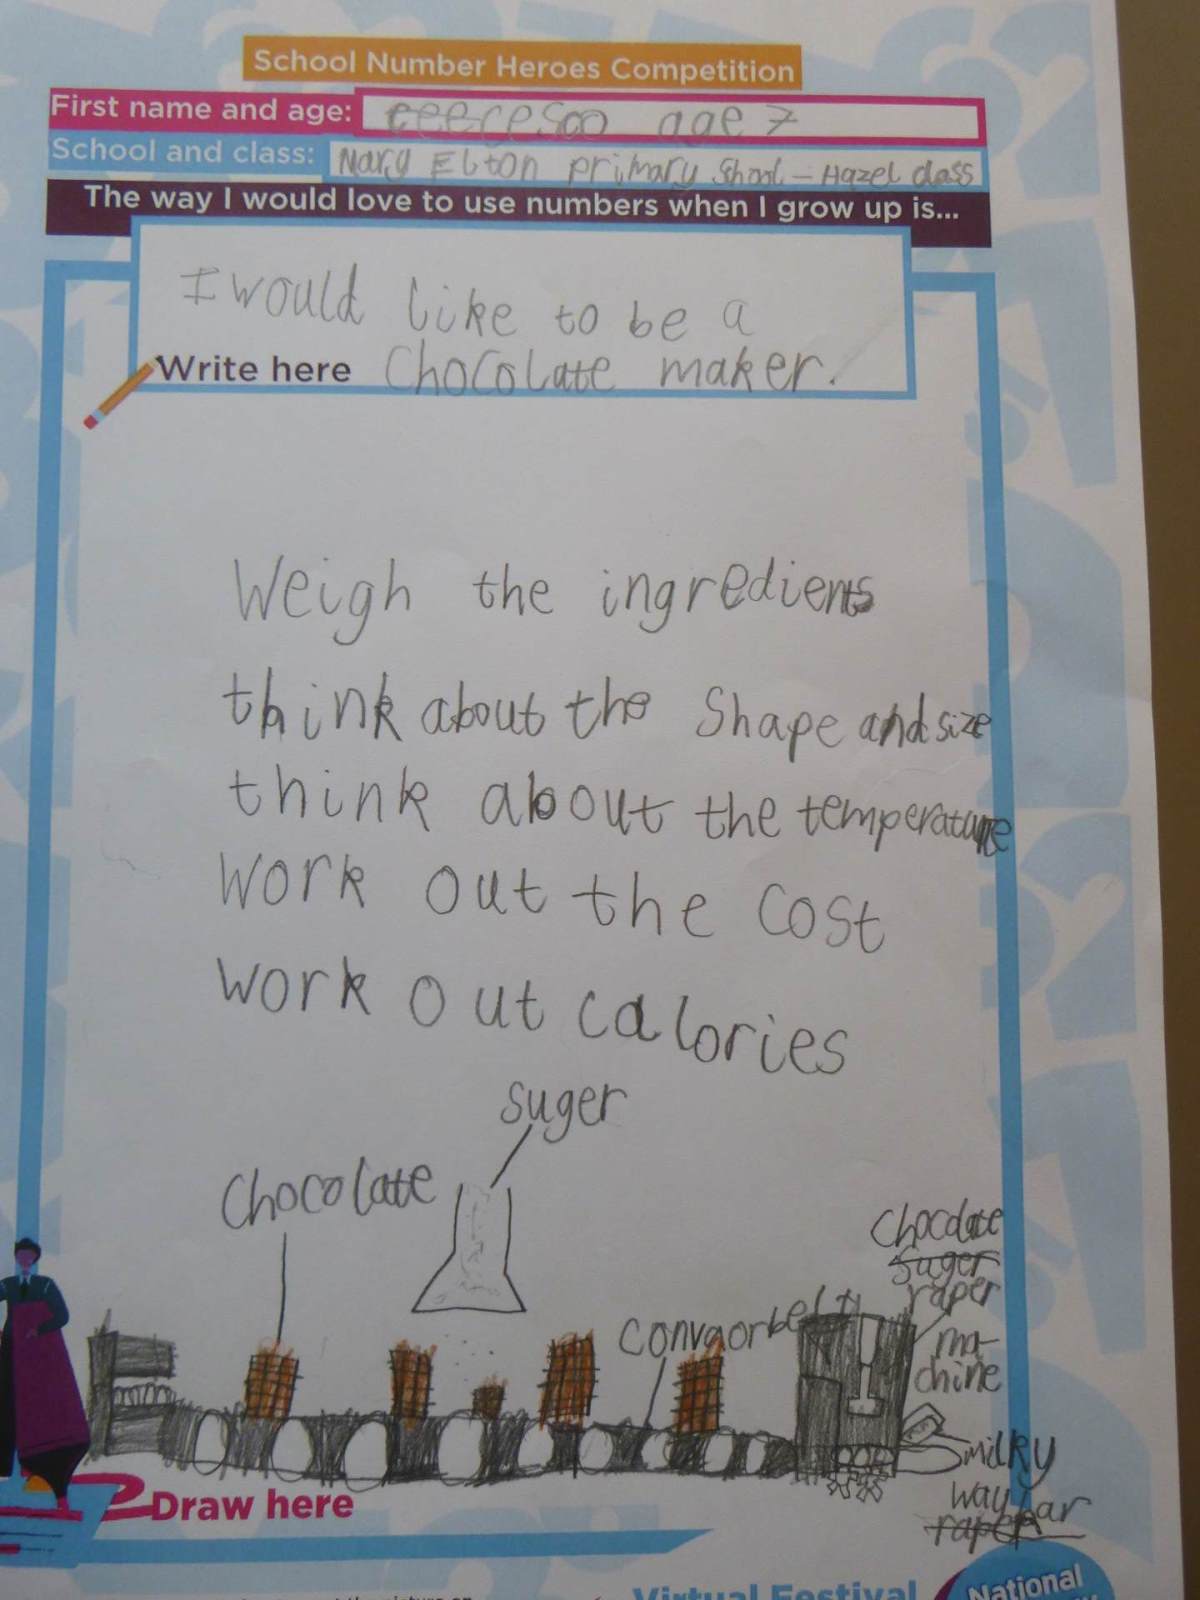 School Number Heroes Competition
First name and age: age 7
School and class: Mary Elton primary School - Hazel class
The way I would love to use numbers when I grow up is...
I would like to be a
Write here Chocolate maker.
Weigh the ingredients
think about the shape and size
think about the temperature
work out the cost
work out calories
suger
Chocolate
Chocolate
suger
raper
ma-
chine
convaorbelt
milky
way bar
raper
Draw here
Virtual Festival
National